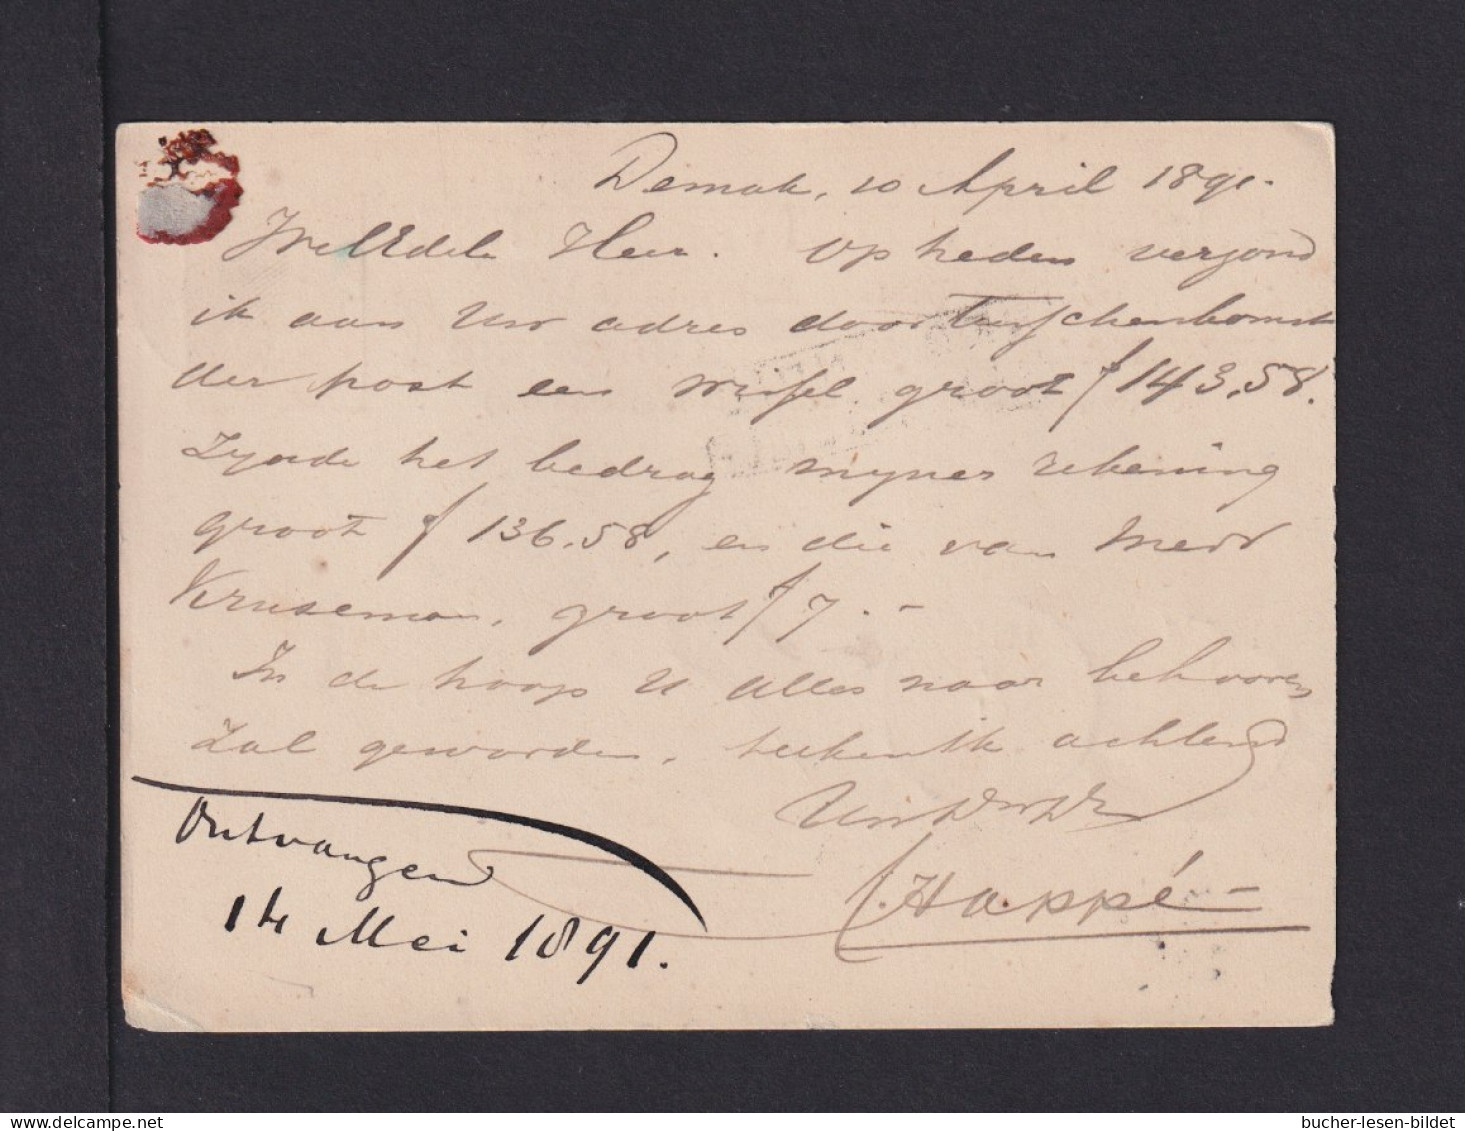 Demak, 10 April 1891.
WelEdele Heer. Op heden verzond
ik aan Uw adres door tusschenkomst
der post een wissel groot f 143,58.
Zynde het bedrag myner rekening
groot f 136.58, en die van Mevr
Kruseman, groot f 7.-
In de hoop U alles naar behooren
zal geworden, teekent achtend
UwDwDr
Happé
Ontvangen
14 Mei 1891.
bucher-lesen-bildet